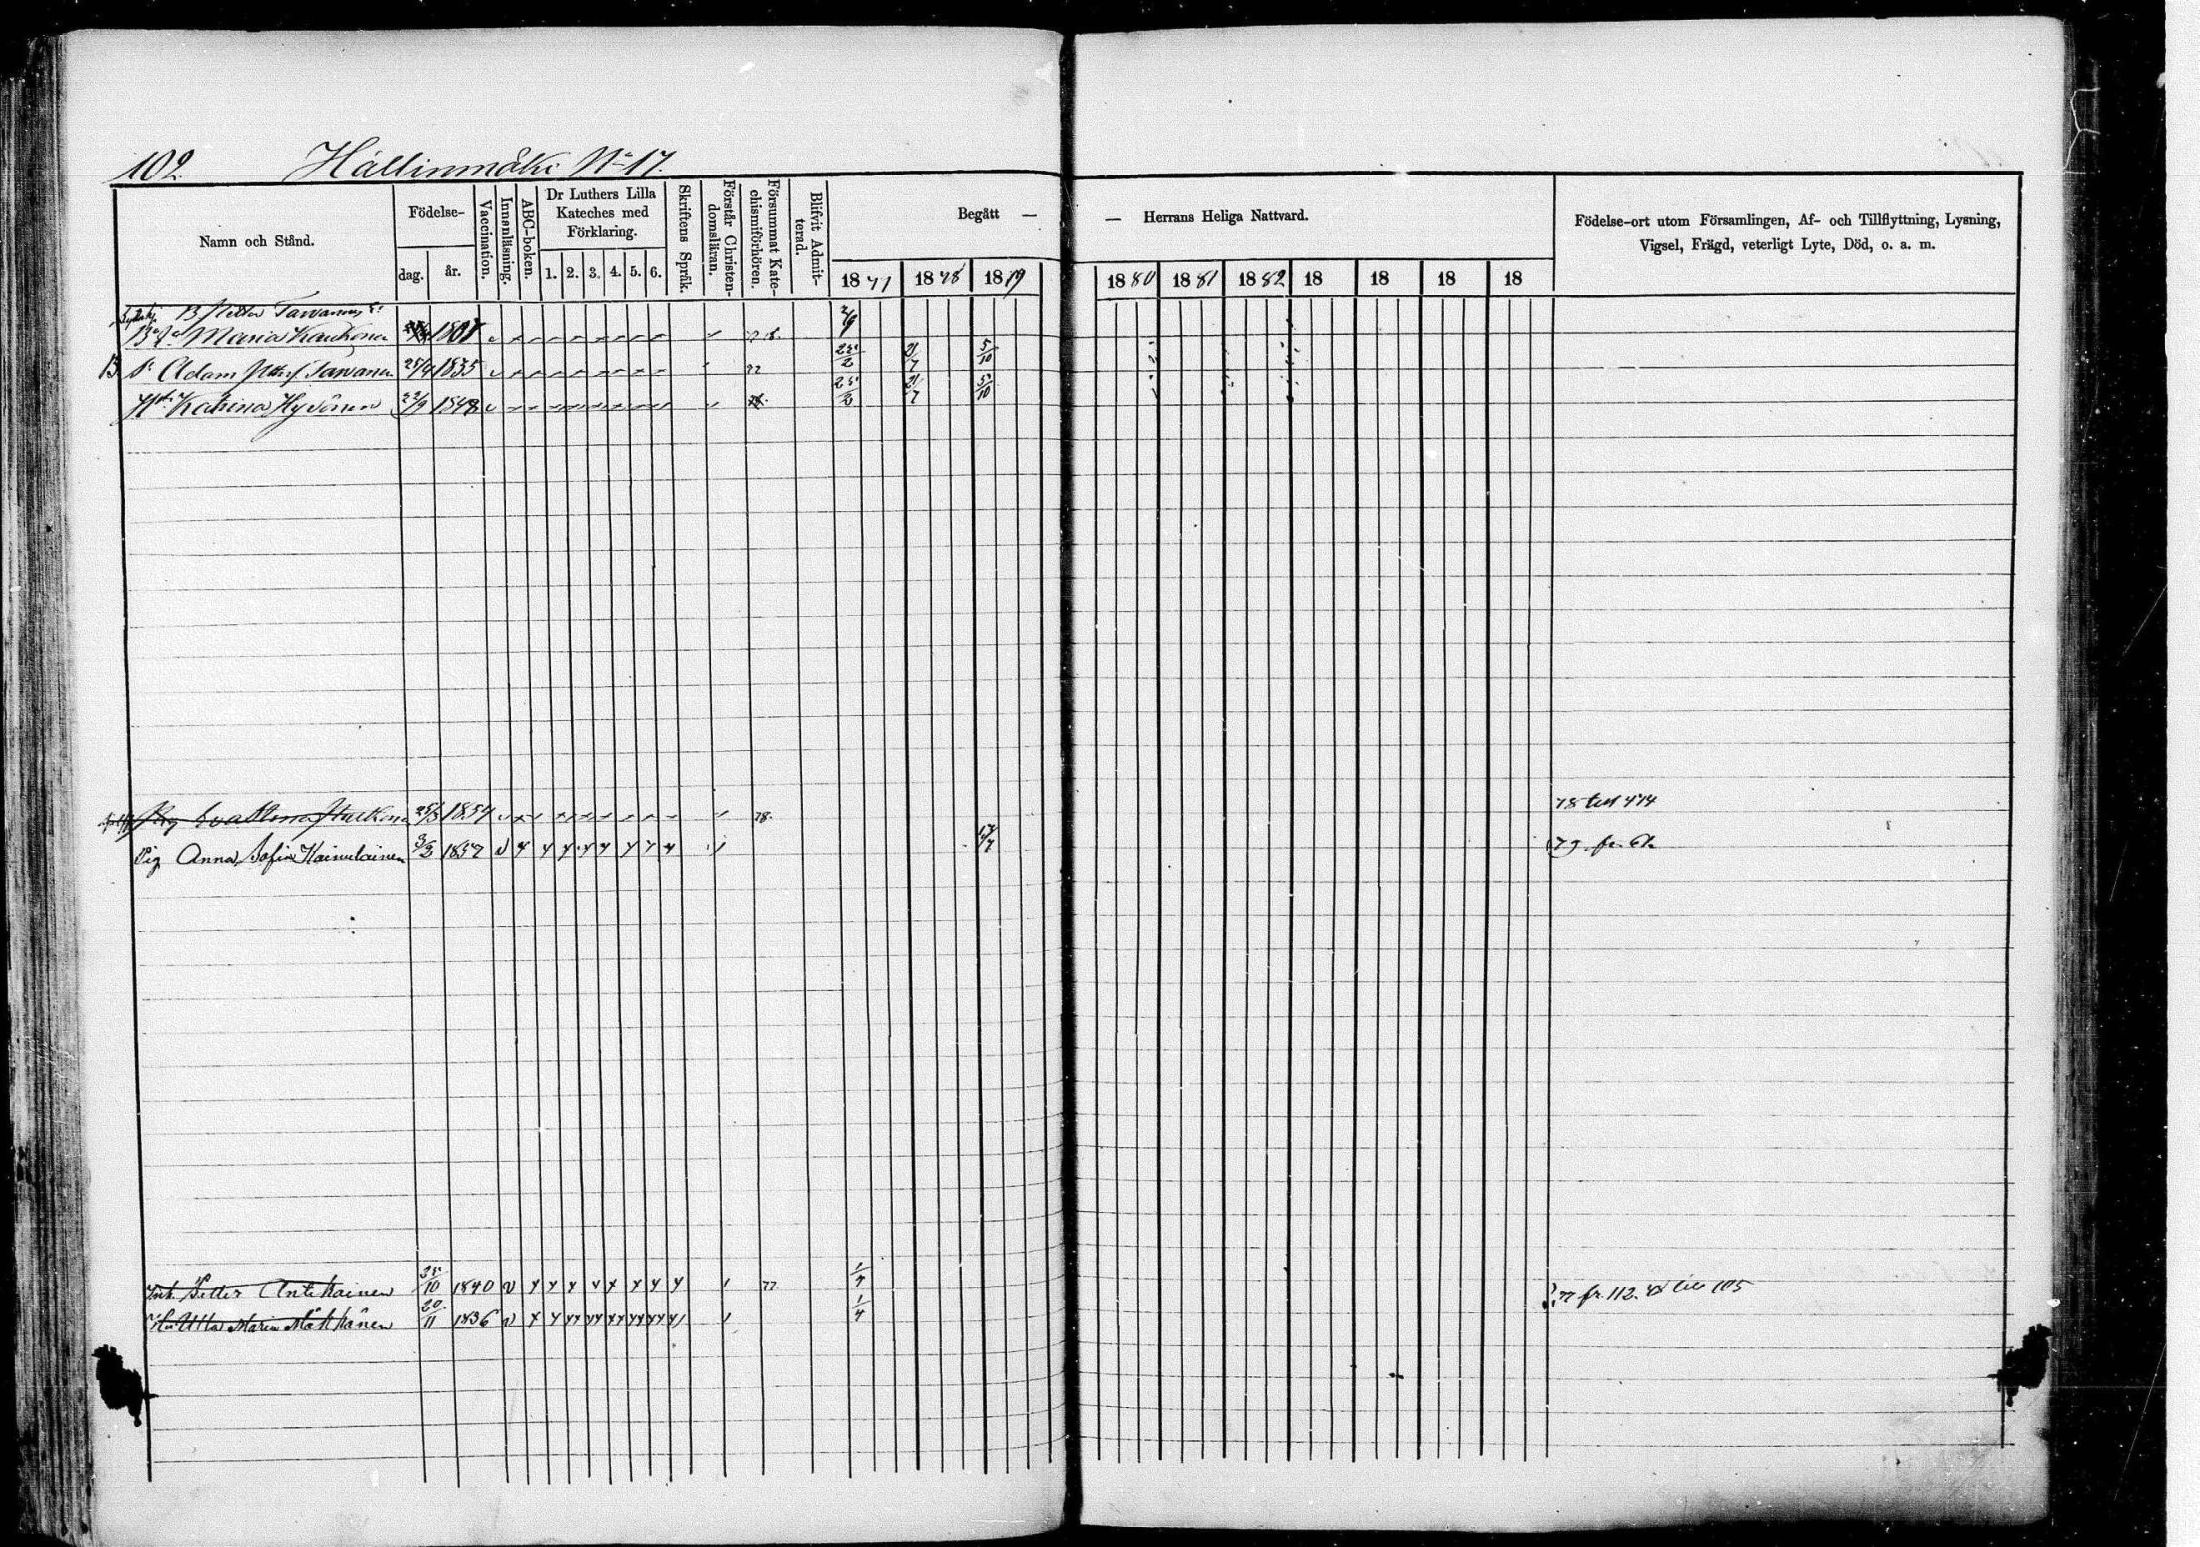 102. Hällinmäki No 17.
Namn och Stånd.
Födelse-
dag.
år.
Vaccination.
Innanläsning.
ABC-boken.
Dr Luthers Lilla
Kateches med
Förklaring.
1. 2. 3. 4. 5. 6.
Skriftens Språk.
Förstår Christen-
domsläran.
Försummat Kate-
chismiförhören.
Blifvit Admit-
terad.
Begått —
— Herrans Heliga Nattvard.
1877 1878 1879
1880 1881 1882 18 18 18 18
Födelse-ort utom Församlingen, Af- och Tillflyttning, Lysning,
Vigsel, Frägd, veterligt Lyte, Död, o. a. m.
B Petter Tarvainen
Maria Kaukonen 1807
B Sn Adam Tarvanen 25/4 1835 77 25/2 21/7 5/10
Hu Katrina Hyvönen 22/9 1848 25/2 21/7 5/10
Eva Stena 25/3 1854 78. 78 till 474
Pig Anna Sofia Hainulainen 3/2 1857 79 fr.
Petter Antikainen 10 1840 77 1/4 77 fr. 112. 78 till 105
Hu Ulla Maria 20/11 1836 1/4